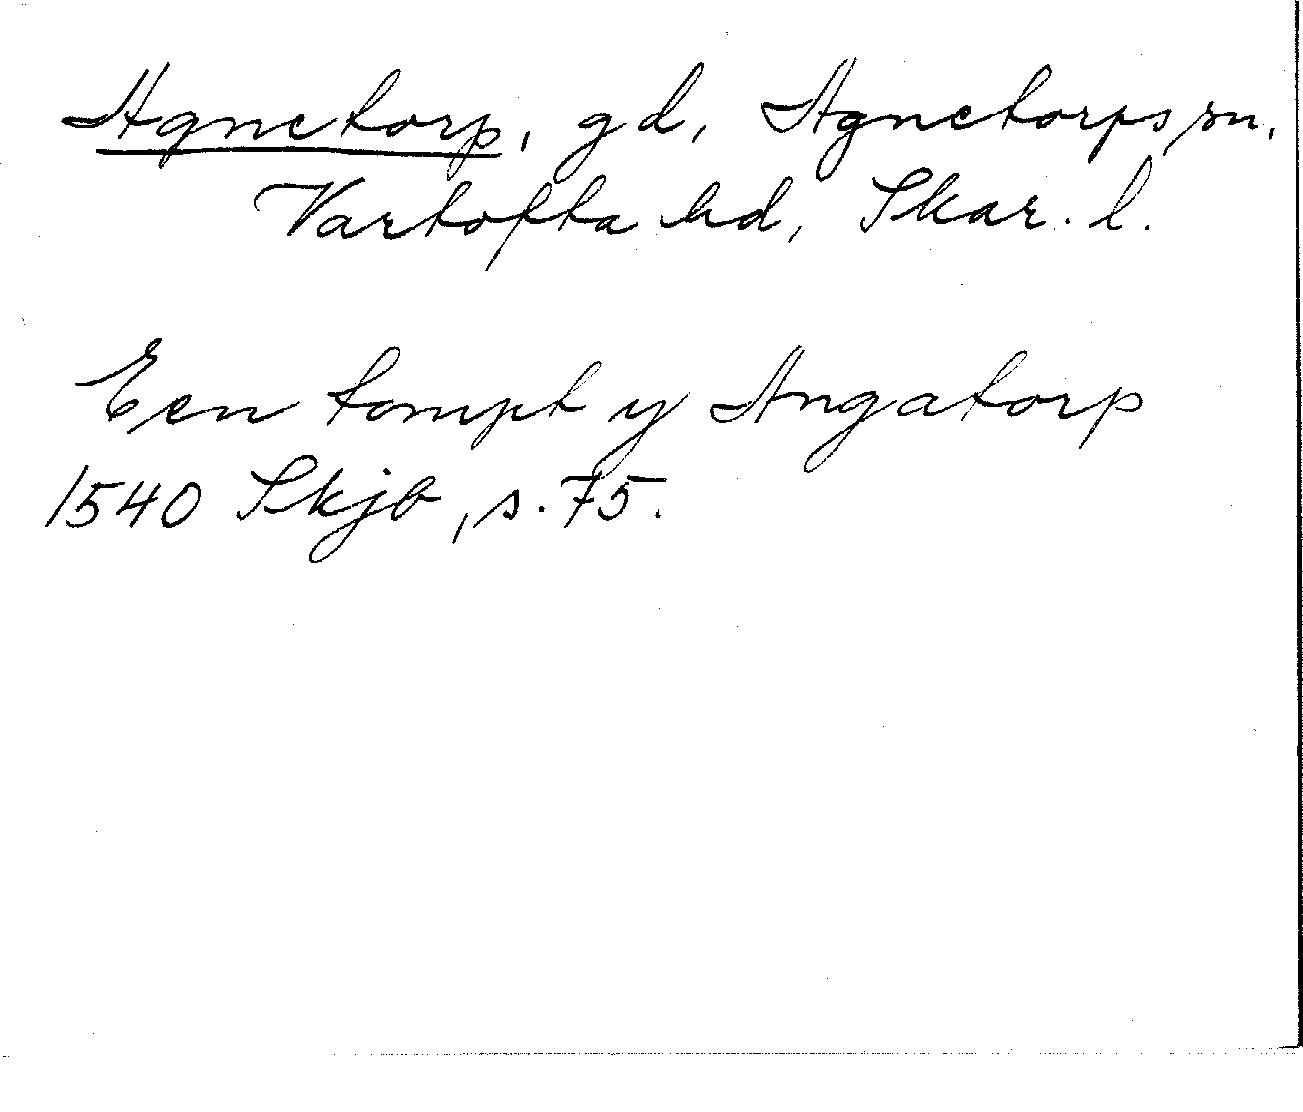 Agnetorp, gd, Agnetorps sn,
Vartofta hd, Skar. l.
Een tompt y Angatorp
1540 Skjb, s. 75.